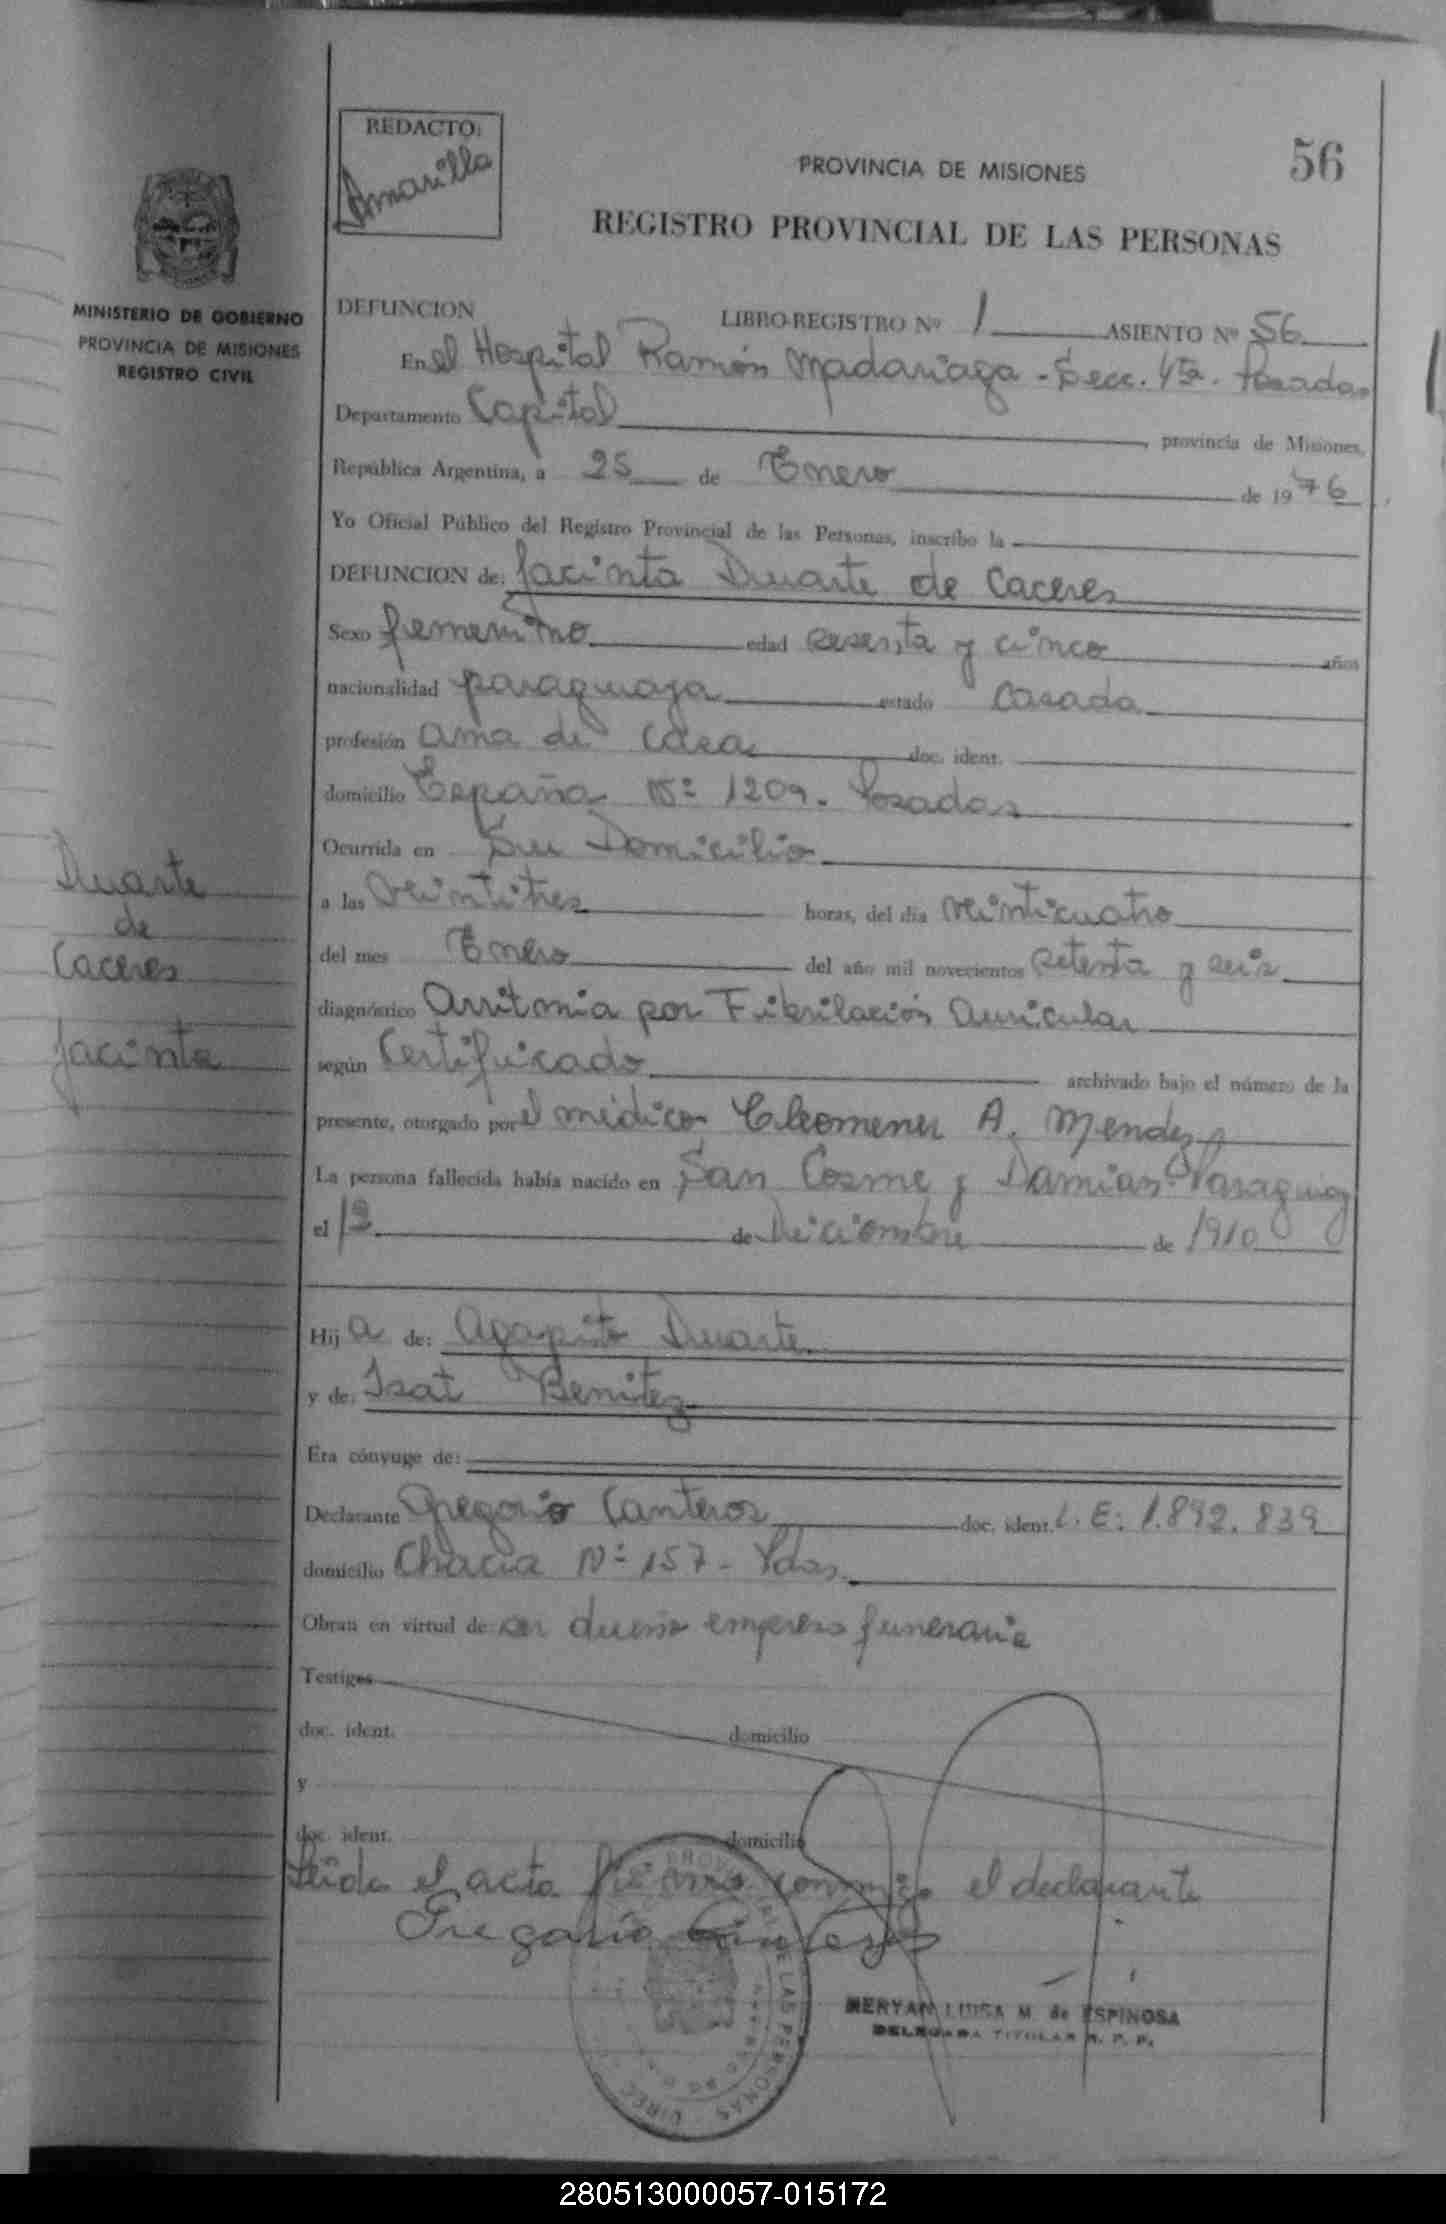 REDACTO:
Amarilla
PROVINCIA DE MISIONES
56
REGISTRO PROVINCIAL DE LAS PERSONAS
MINISTERIO DE GOBIERNO
PROVINCIA DE MISIONES
REGISTRO CIVIL
DEFUNCION LIBRO-REGISTRO Nº 1 ASIENTO Nº 56
En el Hospital Ramón Madariaga - Secc. 4ta. Posadas
Departamento Capital, provincia de Misiones,
República Argentina, a 25 de Enero de 1976
Yo Oficial Público del Registro Provincial de las Personas, inscribo la
DEFUNCION de: Jacinta Duarte de Caceres
Sexo femenino edad sesenta y cinco años
nacionalidad paraguaya estado Casada
profesión ama de casa doc. ident.
domicilio España Nº 1209. Posadas
Ocurrida en Su Domicilio
a las veintitres horas, del día veinticuatro
del mes Enero del año mil novecientos setenta y seis
diagnóstico Arritmia por Fibrilación Auricular
según Certificado archivado bajo el número de la
presente, otorgado por el médico Cleomenes A. Mendez
La persona fallecida había nacido en San Cosme y Damian Paraguay
el de Diciembre de 1910
Hija de: Agapito Duarte
y de: Isat Benitez
Era cónyuge de:
Declarante Gregorio Canteros doc. ident. L. E: 1.892.839
domicilio Chacra Nº 157 - Pdas.
Obran en virtud de ser dueño empresa funeraria
Testigos
doc. ident. domicilio
y
doc. ident. domicilio
Leida el acta firma conmigo el declarante
Gregorio Canteros
MERYAN LUISA M. de ESPINOSA
DELEGADA TITULAR R. P. P.
Duarte
de
Caceres
Jacinta
280513000057-015172